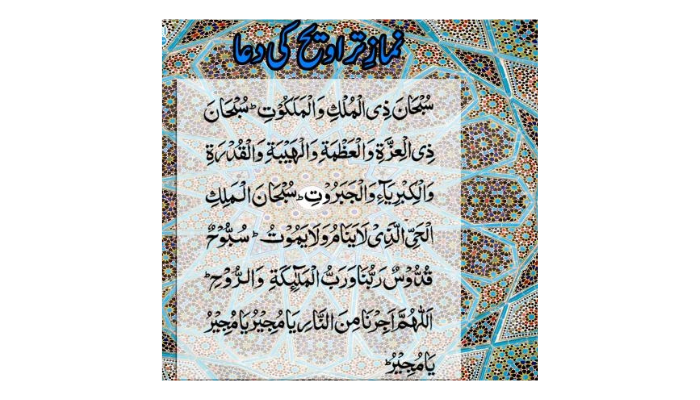 نمازِ تراویح کی دعا
سُبْحَانَ ذِی الْمُلْکِ وَالْمَلَکُوْتِ ؕ سُبْحَانَ
ذِی الْعِزَّةِ وَالْعَظْمَةِ وَالْهَيْبَةِ وَالْقُدْرَةِ
وَالْكِبْرِيَآءِ وَالْجَبَرُوْتِ ؕ سُبْحَانَ الْمَلِكِ
الْحَیِّ الَّذِیْ لَا یَنَامُ وَلَا یَمُوْتُ ؕ سُبُّوْحٌ
قُدُّوْسٌ رَبُّنَا وَرَبُّ الْمَلٰٓئِکَةِ وَالرُّوْحِ ؕ
اَللّٰهُمَّ اَجِرْنَا مِنَ النَّارِ یَا مُجِیْرُ یَا مُجِیْرُ
یَا مُجِیْرُ ؕ